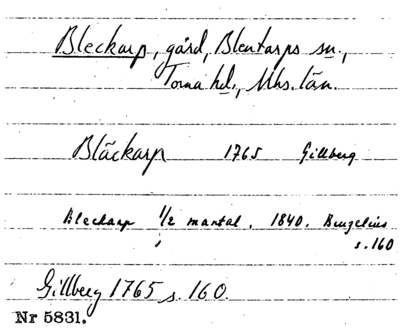 Bleckarp, gård, Blentarps sn.,
Torna hd., Mhs. län.
Bläckarp 1765 Gillberg
Bleckarp 1/2 mantal. 1840. Bruzelius
s. 160
Gillberg 1765 s. 160.
Nr 5831.